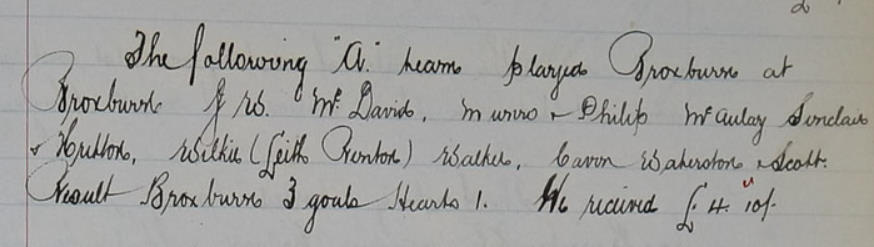 The following "A." team played Broxburn at
Broxburn Mc David, Munro & Philip McAulay Sinclair
& Hutton, Wilkie (Leith Renton) Walker, Cavon Waterston & Scott.
Result Broxburn 3 goals Hearts 1. We received £4. 10/-